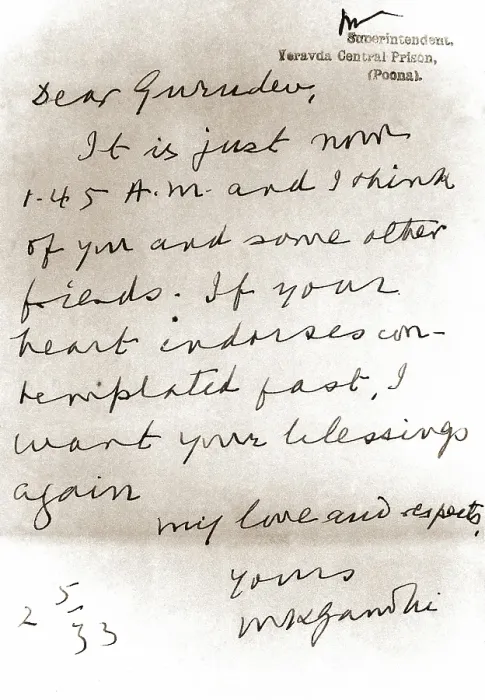 Superintendent,
Yeravda Central Prison,
(Poona).
Dear Gurudev,
It is just now
1.45 A.M. and I think
of you and some other
friends. If your
heart endorses con-
templated fast, I
want your blessings
again
my love and respects,
yours
MKGandhi
2 5/33